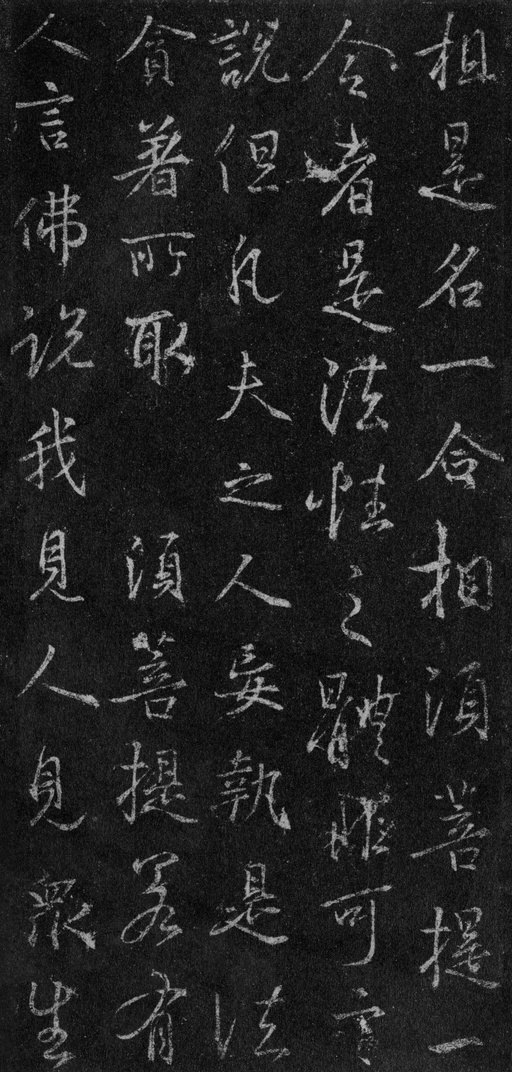 相是名一合相須菩提一
合者是法性之體雖可言
說但凡夫之人妄執是法
貪著所取 須菩提若有
人言佛說我見人見眾生